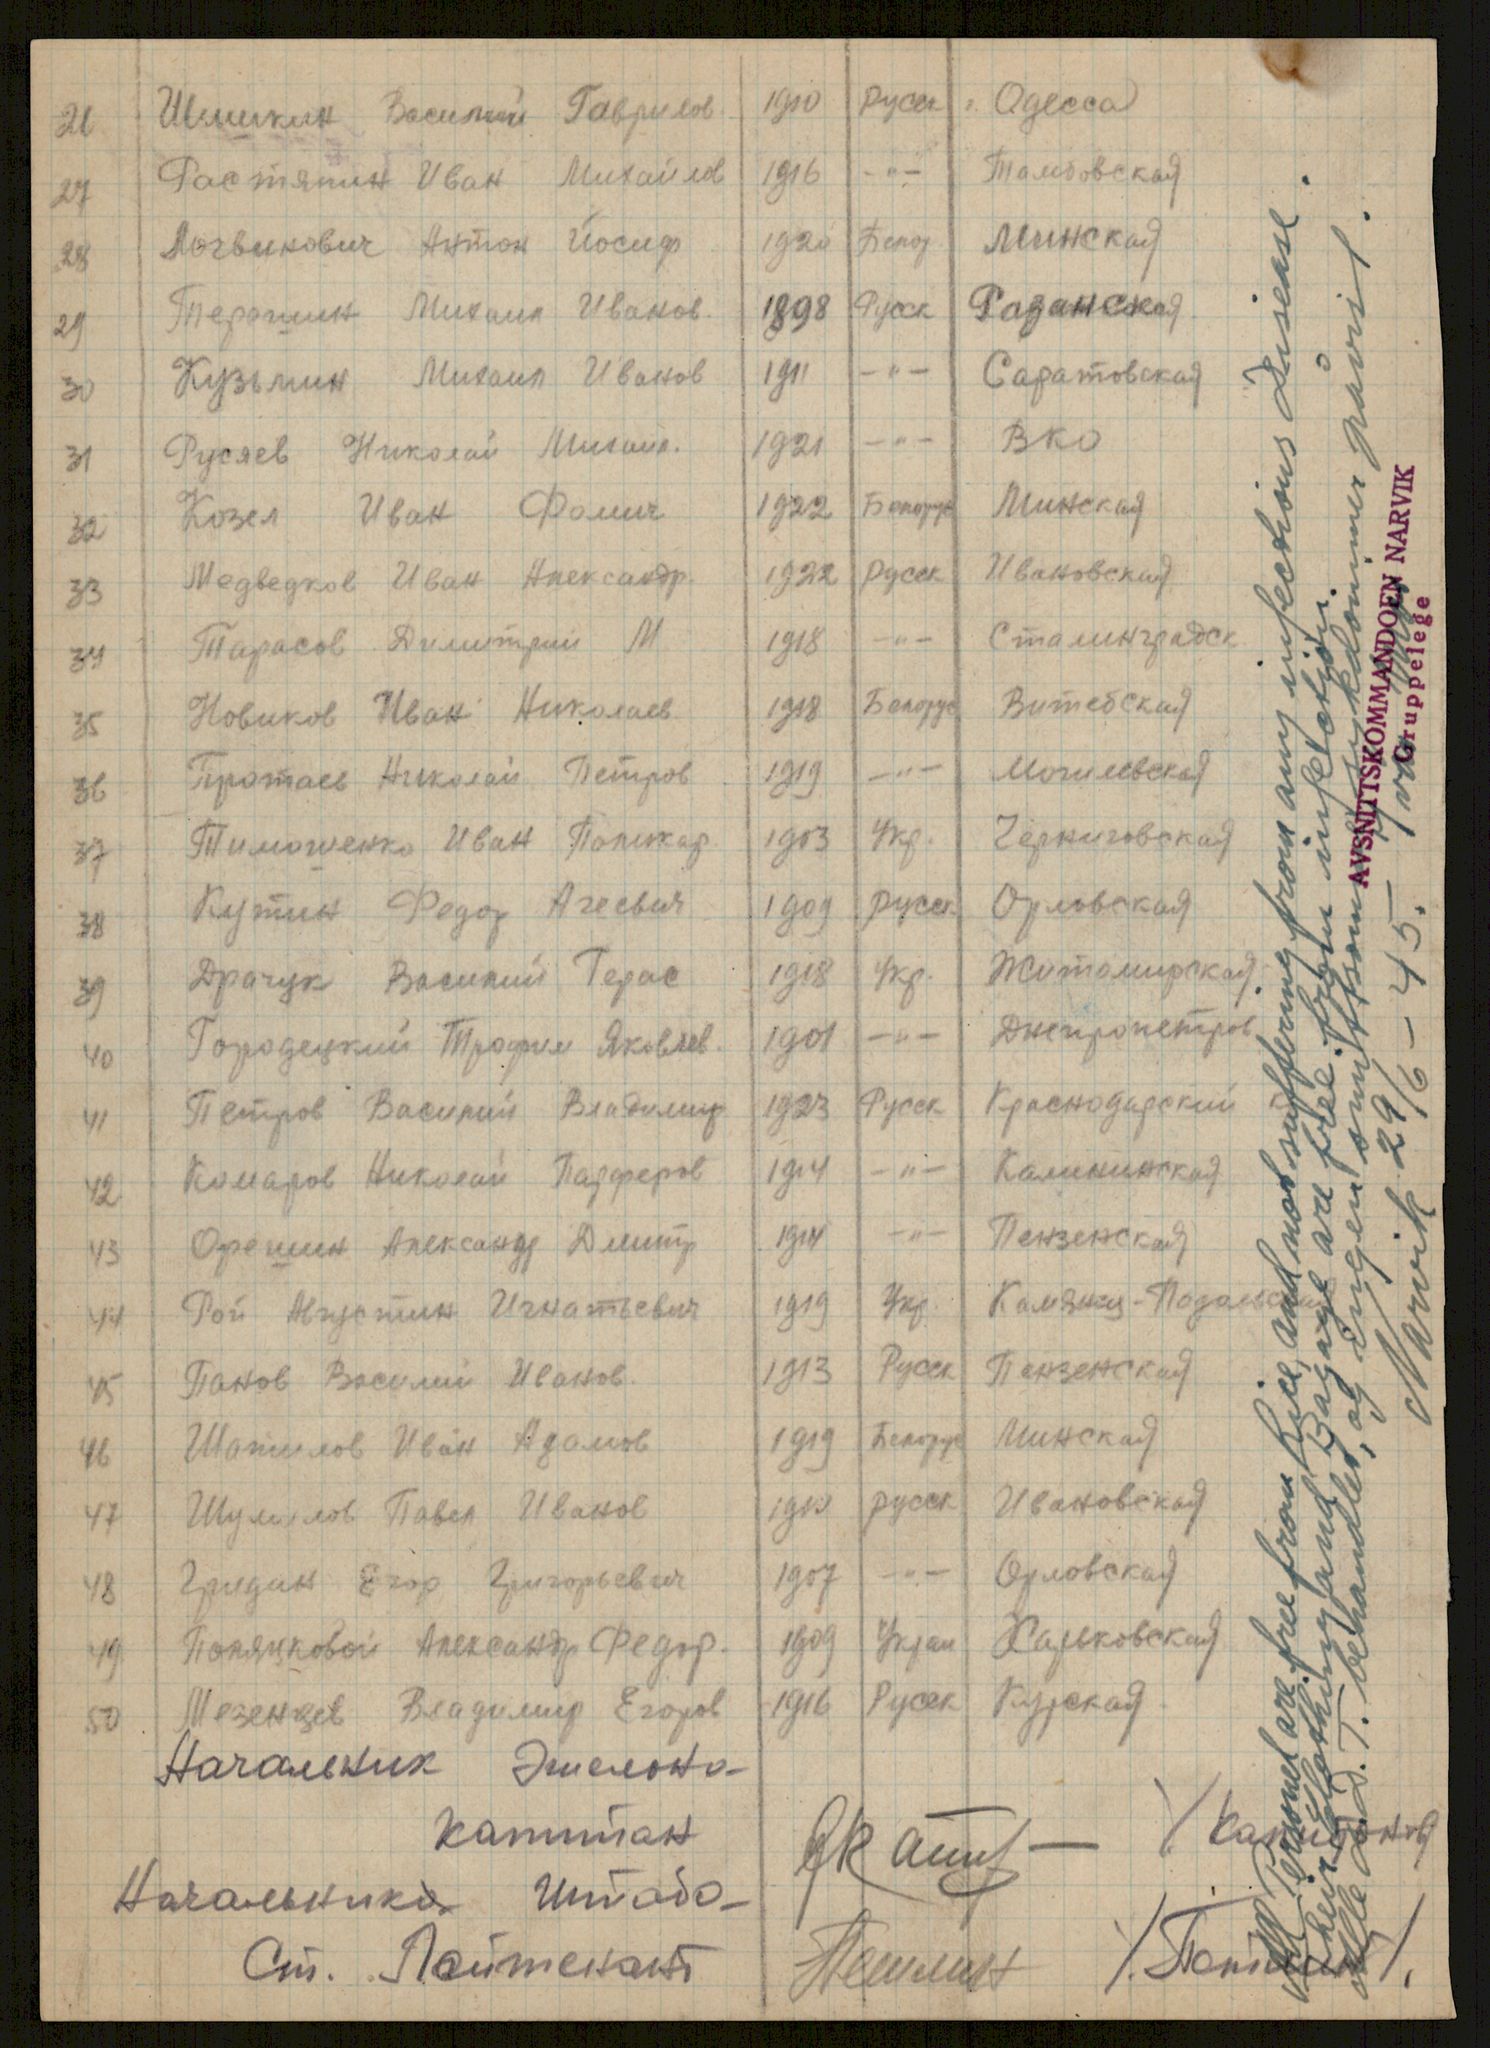 26 Шишкин Василий Гаврилов. 1910 Русск г. Одесса
27 Растяпин Иван Михайлов 1916 -"- Тамбовская
28 Логвинович Антон Йосиф 1920 Белор. Минская
29 Терапин Михаил Иванов. 1898 Русск Рязанская
30 Кузьмин Михаил Иванов 1911 -"- Саратовская
31 Русяев Николай Михаил. 1921 -"- ВКО
32 Козел Иван Фомич 1922 Белорус Минская
33 Медведков Иван Александр. 1922 Русск Ивановская
34 Тарасов Димитрий М 1918 -"- Сталинградск
35 Новиков Иван Николаев 1918 Белорус Витебская
36 Протаев Николай Петров 1919 -"- Могилевская
37 Тимошенко Иван Поликар. 1903 Укр. Черниговская
38 Кутин Федор Агеевич 1909 Русск Орловская
39 Драчук Василий Герас 1918 Укр. Житомирская
40 Городецкий Трофим Яковлев. 1901 -"- Днепропетров
41 Петров Василий Владимир 1923 Русск Краснодарский
42 Комаров Николай Парферов 1914 -"- Калининская
43 Орешин Александр Дмитр 1914 -"- Пензенская
44 Рой Августин Игнатьевич 1919 Укр.
45 Панов Василий Иванов. 1913 Русск Пензенская
46 Шапилов Иван Адамов 1919 Белорус Минская
47 Шумилов Павел Иванов 1910 Русск Ивановская
48 Гридин Егор Григорьевич 1907 -"- Орловская
49 Александр Федор. 1909 Украи Харьковская
50 Мезенцев Владимир Егоров 1916 Русск Курская
Начальник Эшелона-
капитан
Начальника Штаба-
Ст. Лейтенант
All Personel are free from lice, and not suffering from any infectious disease.
Their clothing and Bagage are free from infection.
Alle D.D.T. behandlet, og ingen smittsomme sykdommer påvist.
Narvik 29/6-45.
AVSNITTSKOMMANDOEN NARVIK
Gruppelege